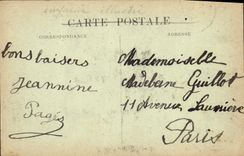 CARTE POSTALE
CORRESPONDANCE
ADRESSE
bons baisers
Jeannine
Pagis
Mademoiselle
Madelane Guillot
11 Avenue
Paris